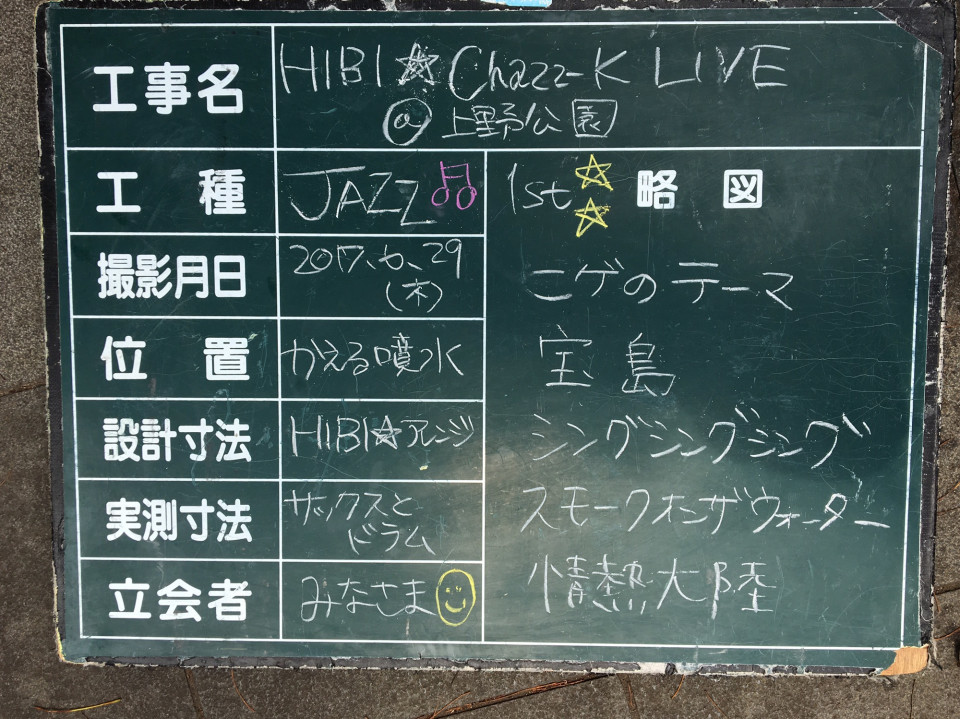 工事名 HIBI☆Chazz-K LIVE
@上野公園
工種 JAZZ♫
撮影月日 2017.6.29
(木)
位置 かえる噴水
設計寸法 HIBI☆アレンジ
実測寸法 サックスと
ドラム
立会者 みなさま
1st☆☆ 略図
ニゲのテーマ
宝島
シングシングシング
スモークオンザウォーター
情熱大陸